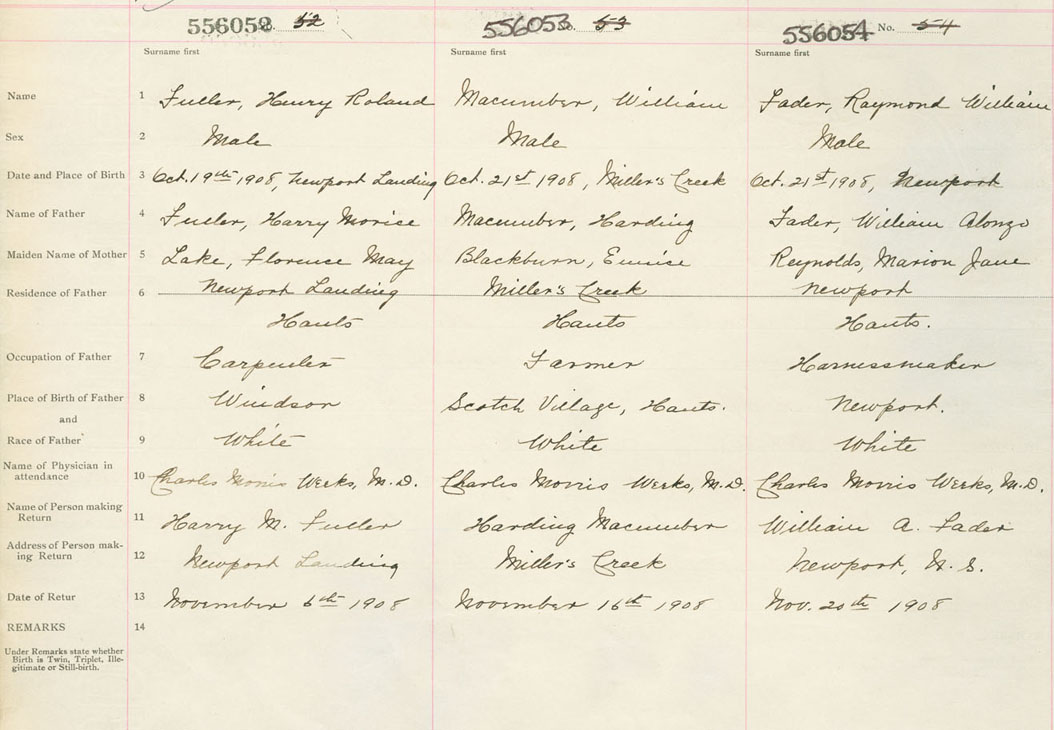 556052 No. 52 556053 No. 53 556054 No. 54
Surname first Surname first Surname first
Name 1 Fuller, Henry Roland Macumber, William Fader, Raymond William
Sex 2 Male Male Male
Date and Place of Birth 3 Oct. 19th 1908, Newport Landing Oct. 21st 1908, Miller's Creek Oct. 21st 1908, Newport
Name of Father 4 Fuller, Harry Morice Macumber, Harding Fader, William Alonzo
Maiden Name of Mother 5 Lake, Florence May Blackburn, Eunice Reynolds, Marion Jane
Residence of Father 6 Newport Landing Miller's Creek Newport
Hants Hants Hants.
Occupation of Father 7 Carpenter Farmer Harnessmaker
Place of Birth of Father 8 Windsor Scotch Village, Hants. Newport.
and
Race of Father 9 White White White
Name of Physician in
attendance 10 Charles Morris Weeks, M.D. Charles Morris Weeks, M.D. Charles Morris Weeks, M.D.
Name of Person making
Return 11 Harry M. Fuller Harding Macumber William A. Fader
Address of Person mak-
ing Return 12 Newport Landing Miller's Creek Newport, N. S.
Date of Retur 13 November 6th 1908 November 16th 1908 Nov. 20th 1908
REMARKS 14
Under Remarks state whether
Birth is Twin, Triplet, Ille-
gitimate or Still-birth.